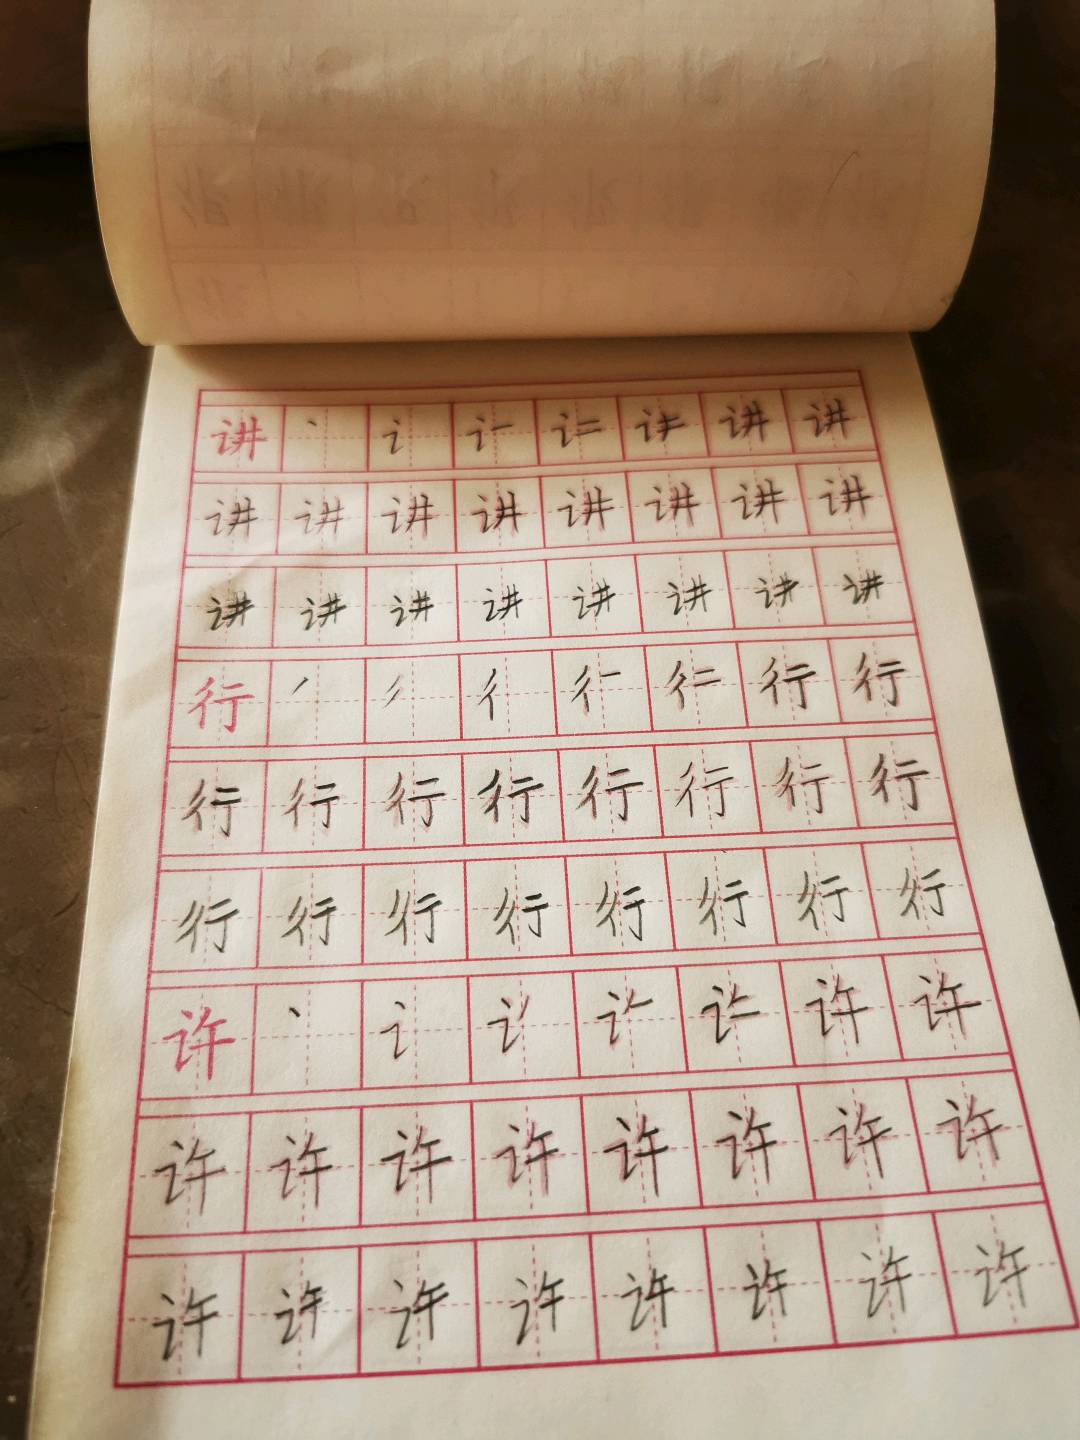 讲 丶 讠 讠一 讠二 讲 讲 讲
讲 讲 讲 讲 讲 讲 讲 讲
讲 讲 讲 讲 讲 讲 讲 讲
行 丿 彳 彳 行 行
行 行 行 行 行 行 行 行
行 行 行 行 行 行 行 行
许 丶 讠 许 许
许 许 许 许 许 许 许 许
许 许 许 许 许 许 许 许